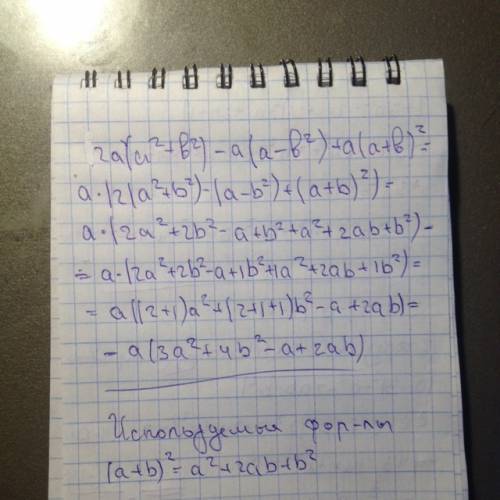 2a(a²+b²)-a(a-b²)+a(a+b)²=
a·(2(a²+b²)-(a-b²)+(a+b)²)=
a·(2a²+2b²-a+b²+a²+2ab+b²)=
=a·(2a²+2b²-a+1b²+1a²+2ab+1b²)=
=a((2+1)a²+(2+1+1)b²-a+2ab)=
=a(3a²+4b²-a+2ab)
Используемые фор-лы
(a+b)²=a²+2ab+b²